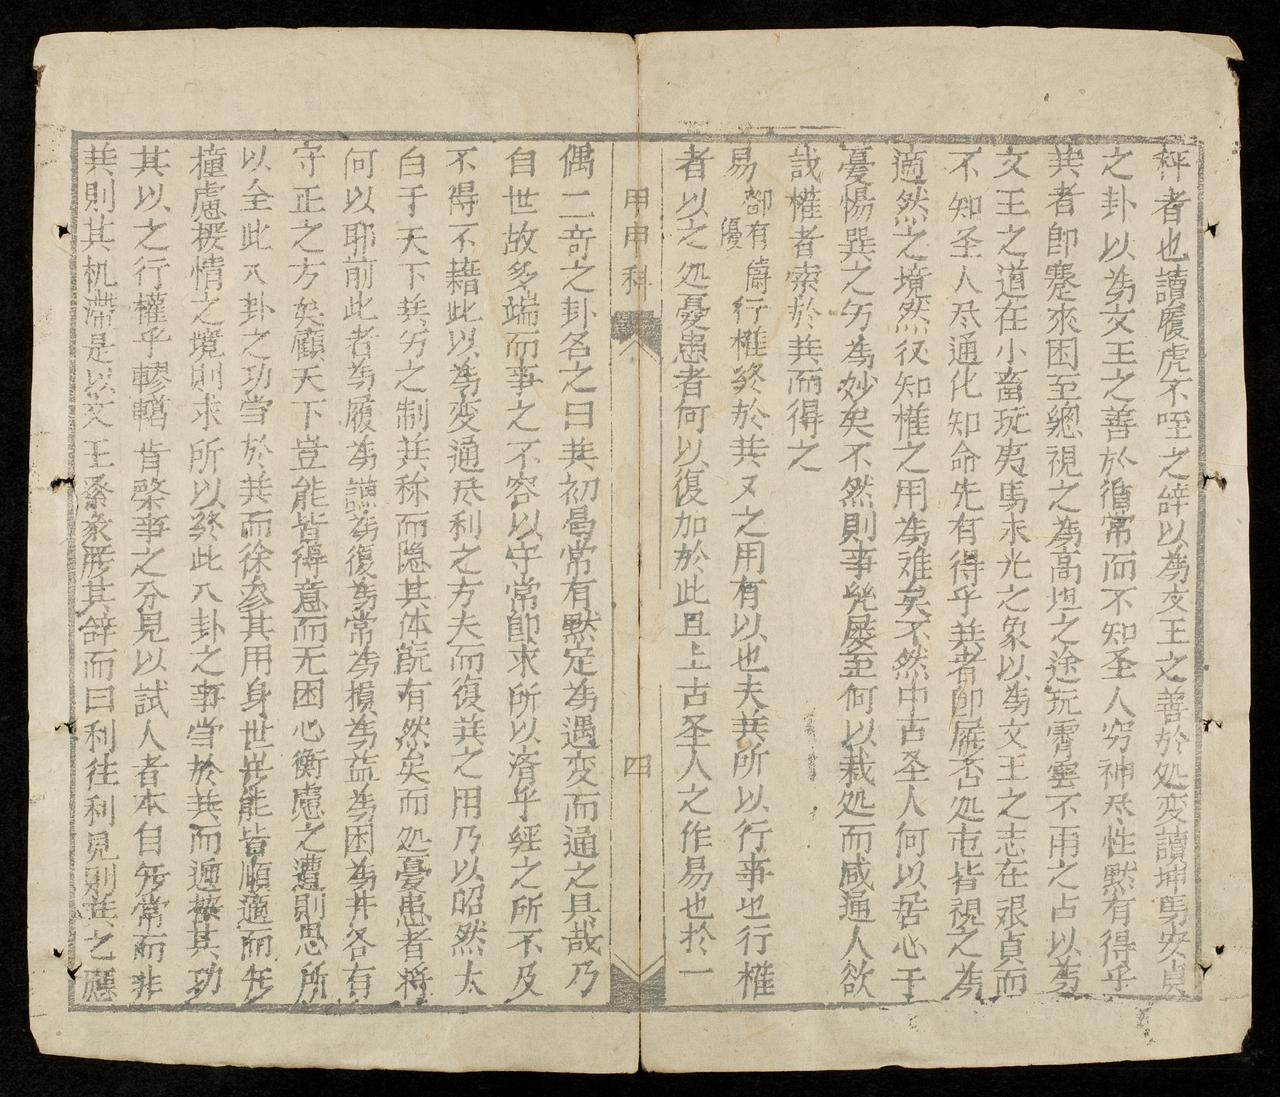 秤者也讀履虎不咥之辞以為文王之善於処変讀坤馬安貞
之卦以為文王之善於循常而不知圣人穷神尽性黙有得乎
巽者即蹇來困至總視之為高堽之途玩霄雲不雨之占以為
文王之道在小畜玩夷馬未光之象以為文王之志在艰貞而
不知圣人尽通化知命先有得乎巽者即屨否処屯皆視之為
適然之境然後知權之用為难矣不然中古圣人何以居心于
憂惕巽之穷為妙矣不然則事㡬屡至何以裁処而咸通人欲
哉權者索於巽而得之
易 卻有優齊 行權終於巽巽之用有以也夫巽所以行事也行權
者以之処憂患者何以復加於此且上古圣人之作易也於一
甲申科 四
偶二竒之卦名之曰巽初曷常有黙定為遇变而通之具哉乃
自世故多端而事之不容以守常即求所以済乎經之所不及
不得不藉此以為变通尽利之方夫而復巽之用乃以昭然大
白于天下巽穷之制巽称而隐其体既有然矣而処憂患者将
何以耶前此者為履為謙為復為常為損為益為困為井各有
守正之方矣顧天下豈能皆得意而无困心衡慮之遭則思所
以全此八卦之功当於巽而徐参其用身世岂能皆順適而无
撞慮援情之境則求所以終此八卦之事当於巽而逓換其功
其以之行權乎轇轕肯綮事之夯見以試人者本自旡常而非
巽則其机滯是以文王系彖厯其辞而曰利往利見則巽之應